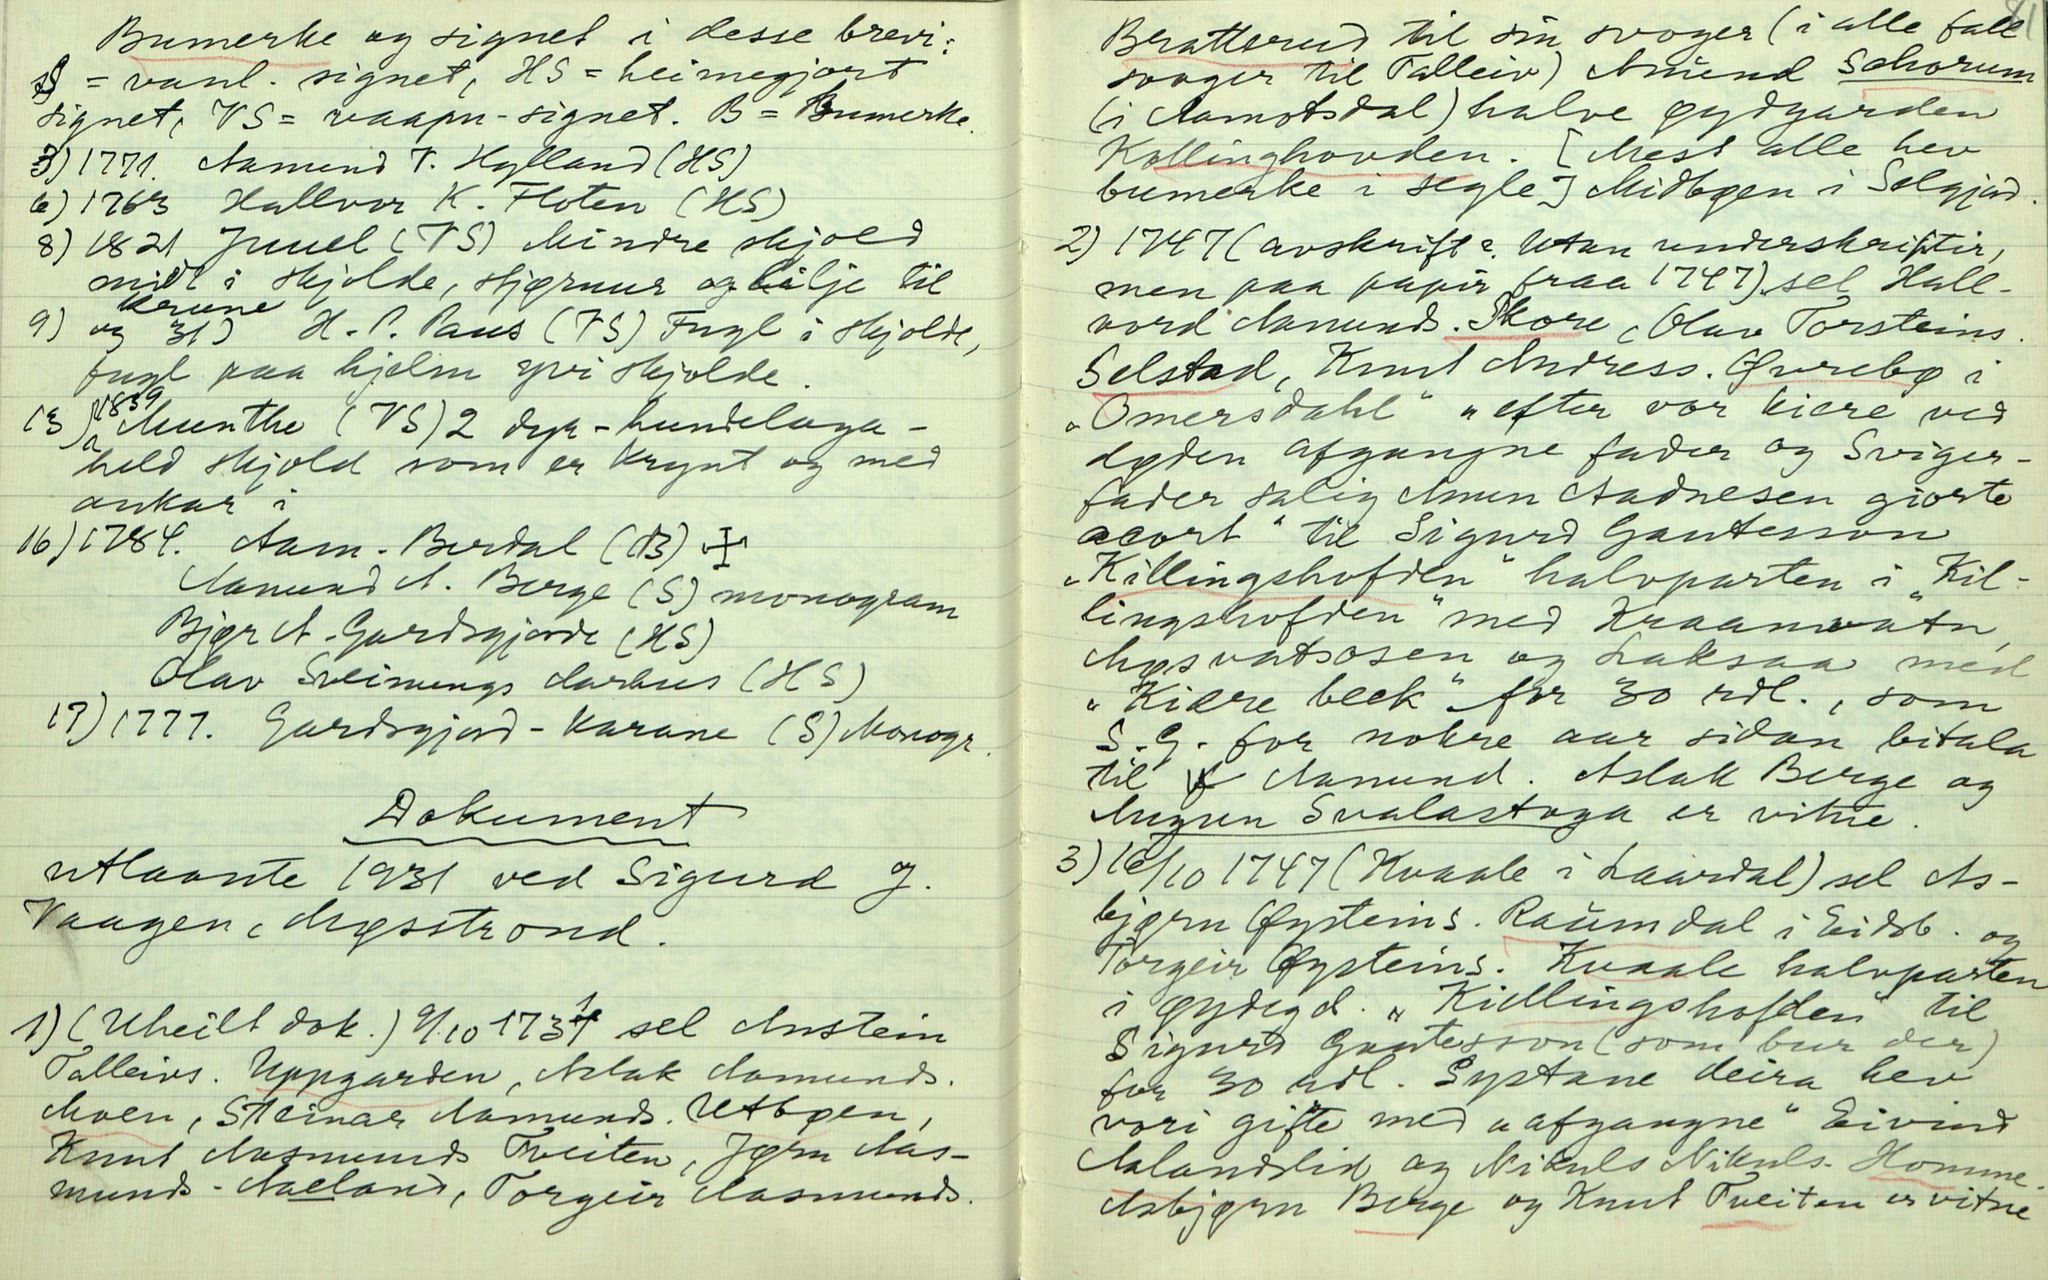 Bumerke og signet i desse brevi:
S = vanl. signet, HS = heimegjort
signet, VS = vaapn-signet. B = Bumerke.
3) 1771. Aamund V. Hylland (HS)
6) 1763 Hallvor K. Floten (HS)
8) 1821 Juuel (VS) Mindre skjold
midt i skjolde, stjernur og lilje til
krune
9) og 31) H. P. Paus (VS) Fugl i skjolde,
fugl paa hjelm yvi skjolde.
13) 1839 Munthe (VS) 2 dyr-hundelaga-
held skjold som er krynt og med
ankar i
16) 1784. Aam. Berdal (B)
Aamund A. Berge (S) monogram
Bjør A. Gardsgjorde (HS)
Olav Sveinungs Aarhus (HS)
17) 1777. Gardsgjord-karane (S) Monogr.
Dokument
utlaante 1931 ved Sigurd J.
Vaagen, Møsstrond.
1) (Uheilt dok.) 9/10 1737 sel Anstein
Talleivs. Uppgarden, Aslak Aamunds.
Moen, Steinar Aamunds. Utbøen,
Knut Aasmunds Tveiten, Jørn Aas-
munds-Aaeland, Torgeir Aasmunds.
81
Brattsrud til sin svoger (i alle fall
svoger til Talleiv) Amund Schorum
(i Aamotsdal) halve øydgarden
Kollinghovden. [Mest alle hev
bumerke i segle] Midbøen i Selgjord.
2) 1747 (avskrift? Utan underskriftir,
men paa papir fraa 1747) sel Hall-
vord Aamunds. Skore, Olav Torsteins.
Selstad, Knut Andress. Øvrebø i
"Omersdahl" "efter vor kiere ved
døden afgangne fader og Sviger-
fader salig Amun Aadnesen giorte
acort" til Sigurd Gautesson
"Killingshofden" halvparten i "Kil-
lingshofden" med Kraamvatn,
Møsvatsosen og Laksaa med
"Kiære beck" for 30 rdl., som
S. G. for nokre aar sidan betala
til Aamund. Aslak Berge og
Augun Svalastoga er vitne.
3) 16/10 1747 (Kvaale i Laardal) sel As-
bjørn Øysteins. Raumdal i Eidsb. og
Torgeir Øysteins. Kvaale halvparten
i øydegd. "Kidlingshofden" til
Sigurd Gautesson (som bur der)
for 30 rdl. Systane deira hev
vori gifte med "afgangne" Eivind
Aalandslid og Nikuls Nikuls. Homme.
Asbjørn Berge og Knut Tveiten er vitne